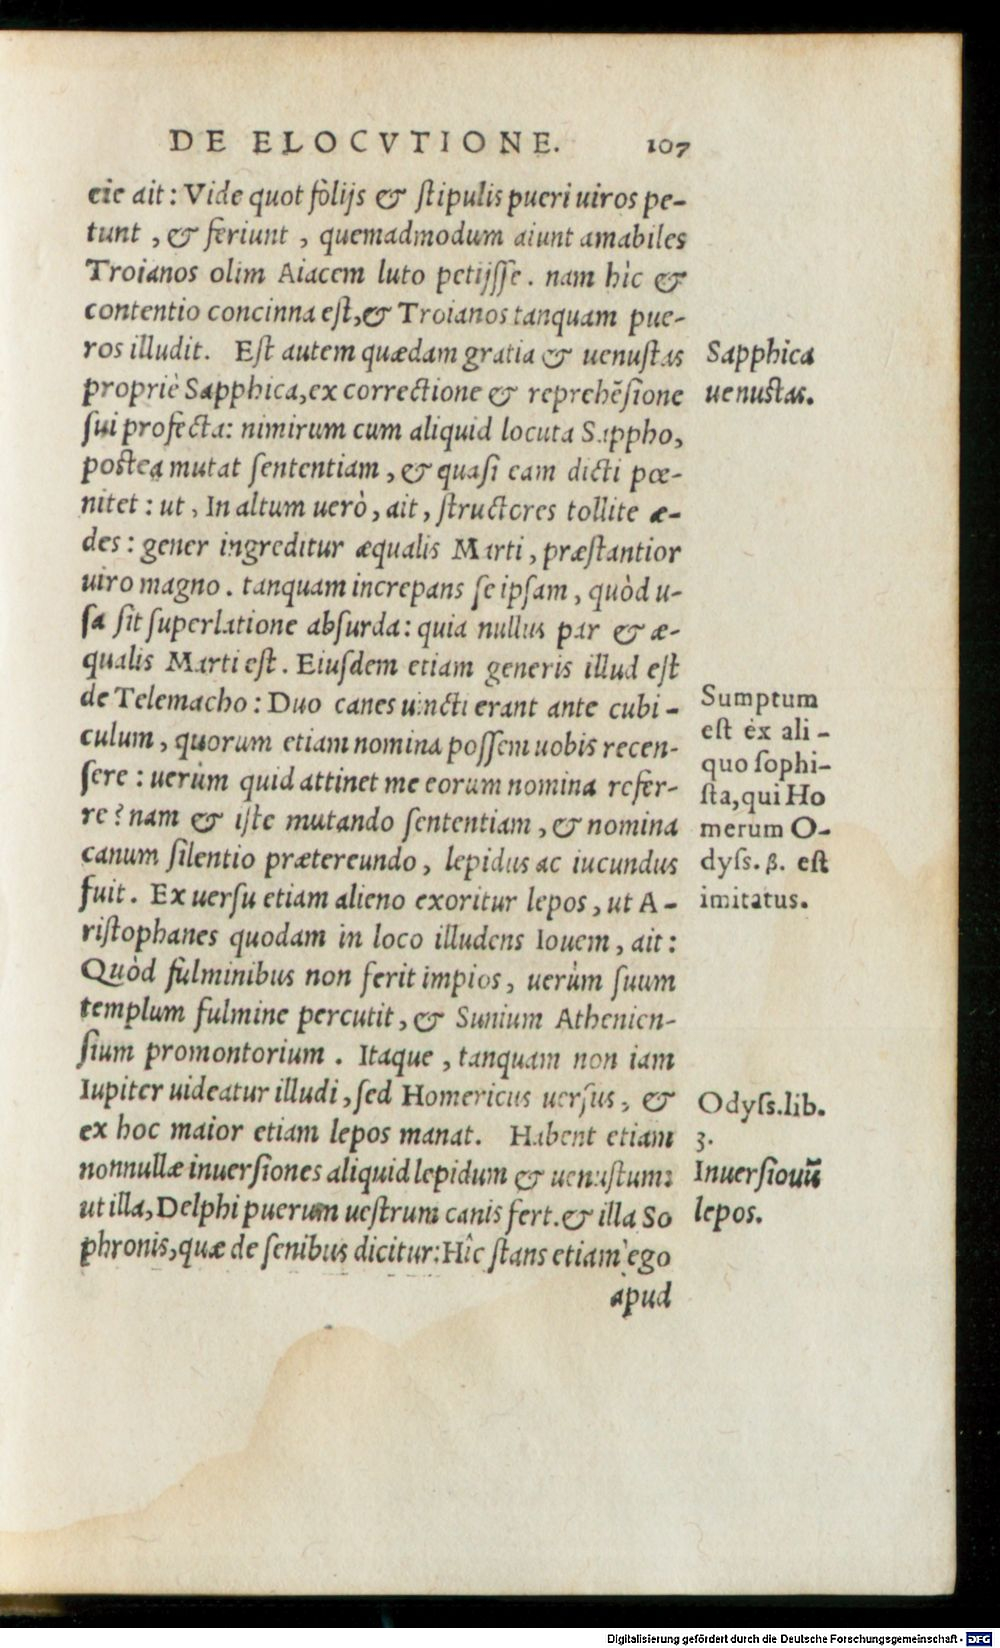 DE ELOCVTIONE. 107
cie ait: Vide quot folijs & stipulis pueri uiros pe-
tunt, & feriunt, quemadmodum aiunt amabiles
Troianos olim Aiacem luto petijsse. nam hìc &
contentio concinna est, & Troianos tanquam pue-
ros illudit. Est autem quædam gratia & uenustas
propriè Sapphica, ex correctione & reprehēsione
sui profecta: nimirum cum aliquid locuta Sappho,
postea mutat sententiam, & quasi eam dicti pœ-
nitet: ut, In altum uerò, ait, structores tollite æ-
des: gener ingreditur æqualis Marti, præstantior
uiro magno. tanquam increpans se ipsam, quòd u-
sa sit superlatione absurda: quia nullus par & æ-
qualis Marti est. Eiusdem etiam generis illud est
de Telemacho: Duo canes uincti erant ante cubi-
culum, quorum etiam nomina possem uobis recen-
sere: uerùm quid attinet me eorum nomina refer-
re? nam & iste mutando sententiam, & nomina
canum silentio prætereundo, lepidus ac iucundus
fuit. Ex uersu etiam alieno exoritur lepos, ut A-
ristophanes quodam in loco illudens Iouem, ait:
Quòd fulminibus non ferit impios, uerùm suum
templum fulmine percutit, & Sunium Athenien-
sium promontorium. Itaque, tanquam non iam
Iupiter uideatur illudi, sed Homericus uersus, &
ex hoc maior etiam lepos manat. Habent etiam
nonnullæ inuersiones aliquid lepidum & uenustum:
ut illa, Delphi puerum uestrum canis fert. & illa So
phronis, quæ de senibus dicitur: Hîc stans etiam ego
apud
Sapphica
uenustas.
Sumptum
est ex ali-
quo sophi-
sta, qui Ho
merum O-
dyss. β. est
imitatus.
Odyss. lib.
3.
Inuersiouū
lepos.
Digitalisierung gefördert durch die Deutsche Forschungsgemeinschaft - DFG